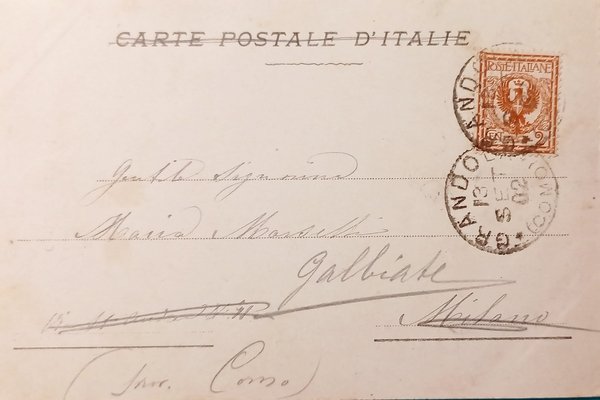 CARTE POSTALE D'ITALIE
POSTE ITALIANE
CEN. 2
GRANDOLA (COMO)
13 SET 02
Gentile Signorina
Maria
Galbiate
Milano
(Prov. Como)